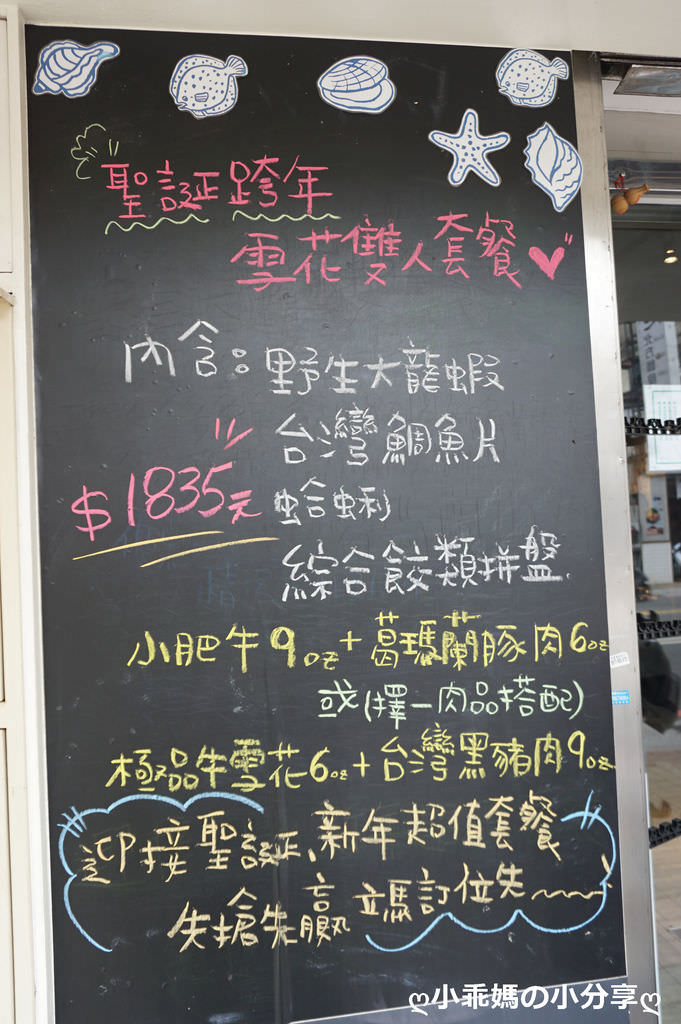 聖誕跨年
雪花雙人套餐
內含:野生大龍蝦
台灣鯛魚片
$1835元
蛤蜊
綜合餃類拼盤
小肥牛9oz+葛瑪蘭豚肉6oz
或(擇一肉品搭配)
極品牛雪花6oz+台灣黑豬肉9oz
迎接聖誕、新年超值套餐
先搶先贏 立馬訂位先~~
ღ小乖媽の小分享ღ